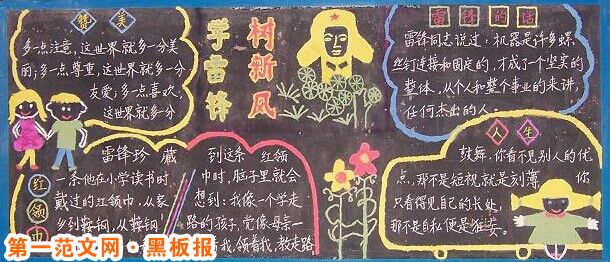 赞美
多一点注意，这世界就多一分美
丽；多一点尊重，这世界就多一分
友爱；多一点喜欢，
这世界就多一分
学雷锋
树新风
雷锋的话
雷锋同志说过：机器是许多螺
丝钉连接和固定的，才成了个坚实的
整体，从个人和整个事业的来讲，
任何杰出的人，
红领巾
雷锋珍藏
一条他在小学读书时
戴过的红领巾，从家
乡到鞍钢，从鞍钢
到这条红领
巾时，脑子里就会
想到：我像一个学走
路的孩子，党像母亲一
我，领着我，教走路
人生
鼓舞，你看不见别人的优
点，那不是短视就是刻薄，你
只看得见自己的长处，
那不是自私便是狂妄。
第一范文网·黑板报